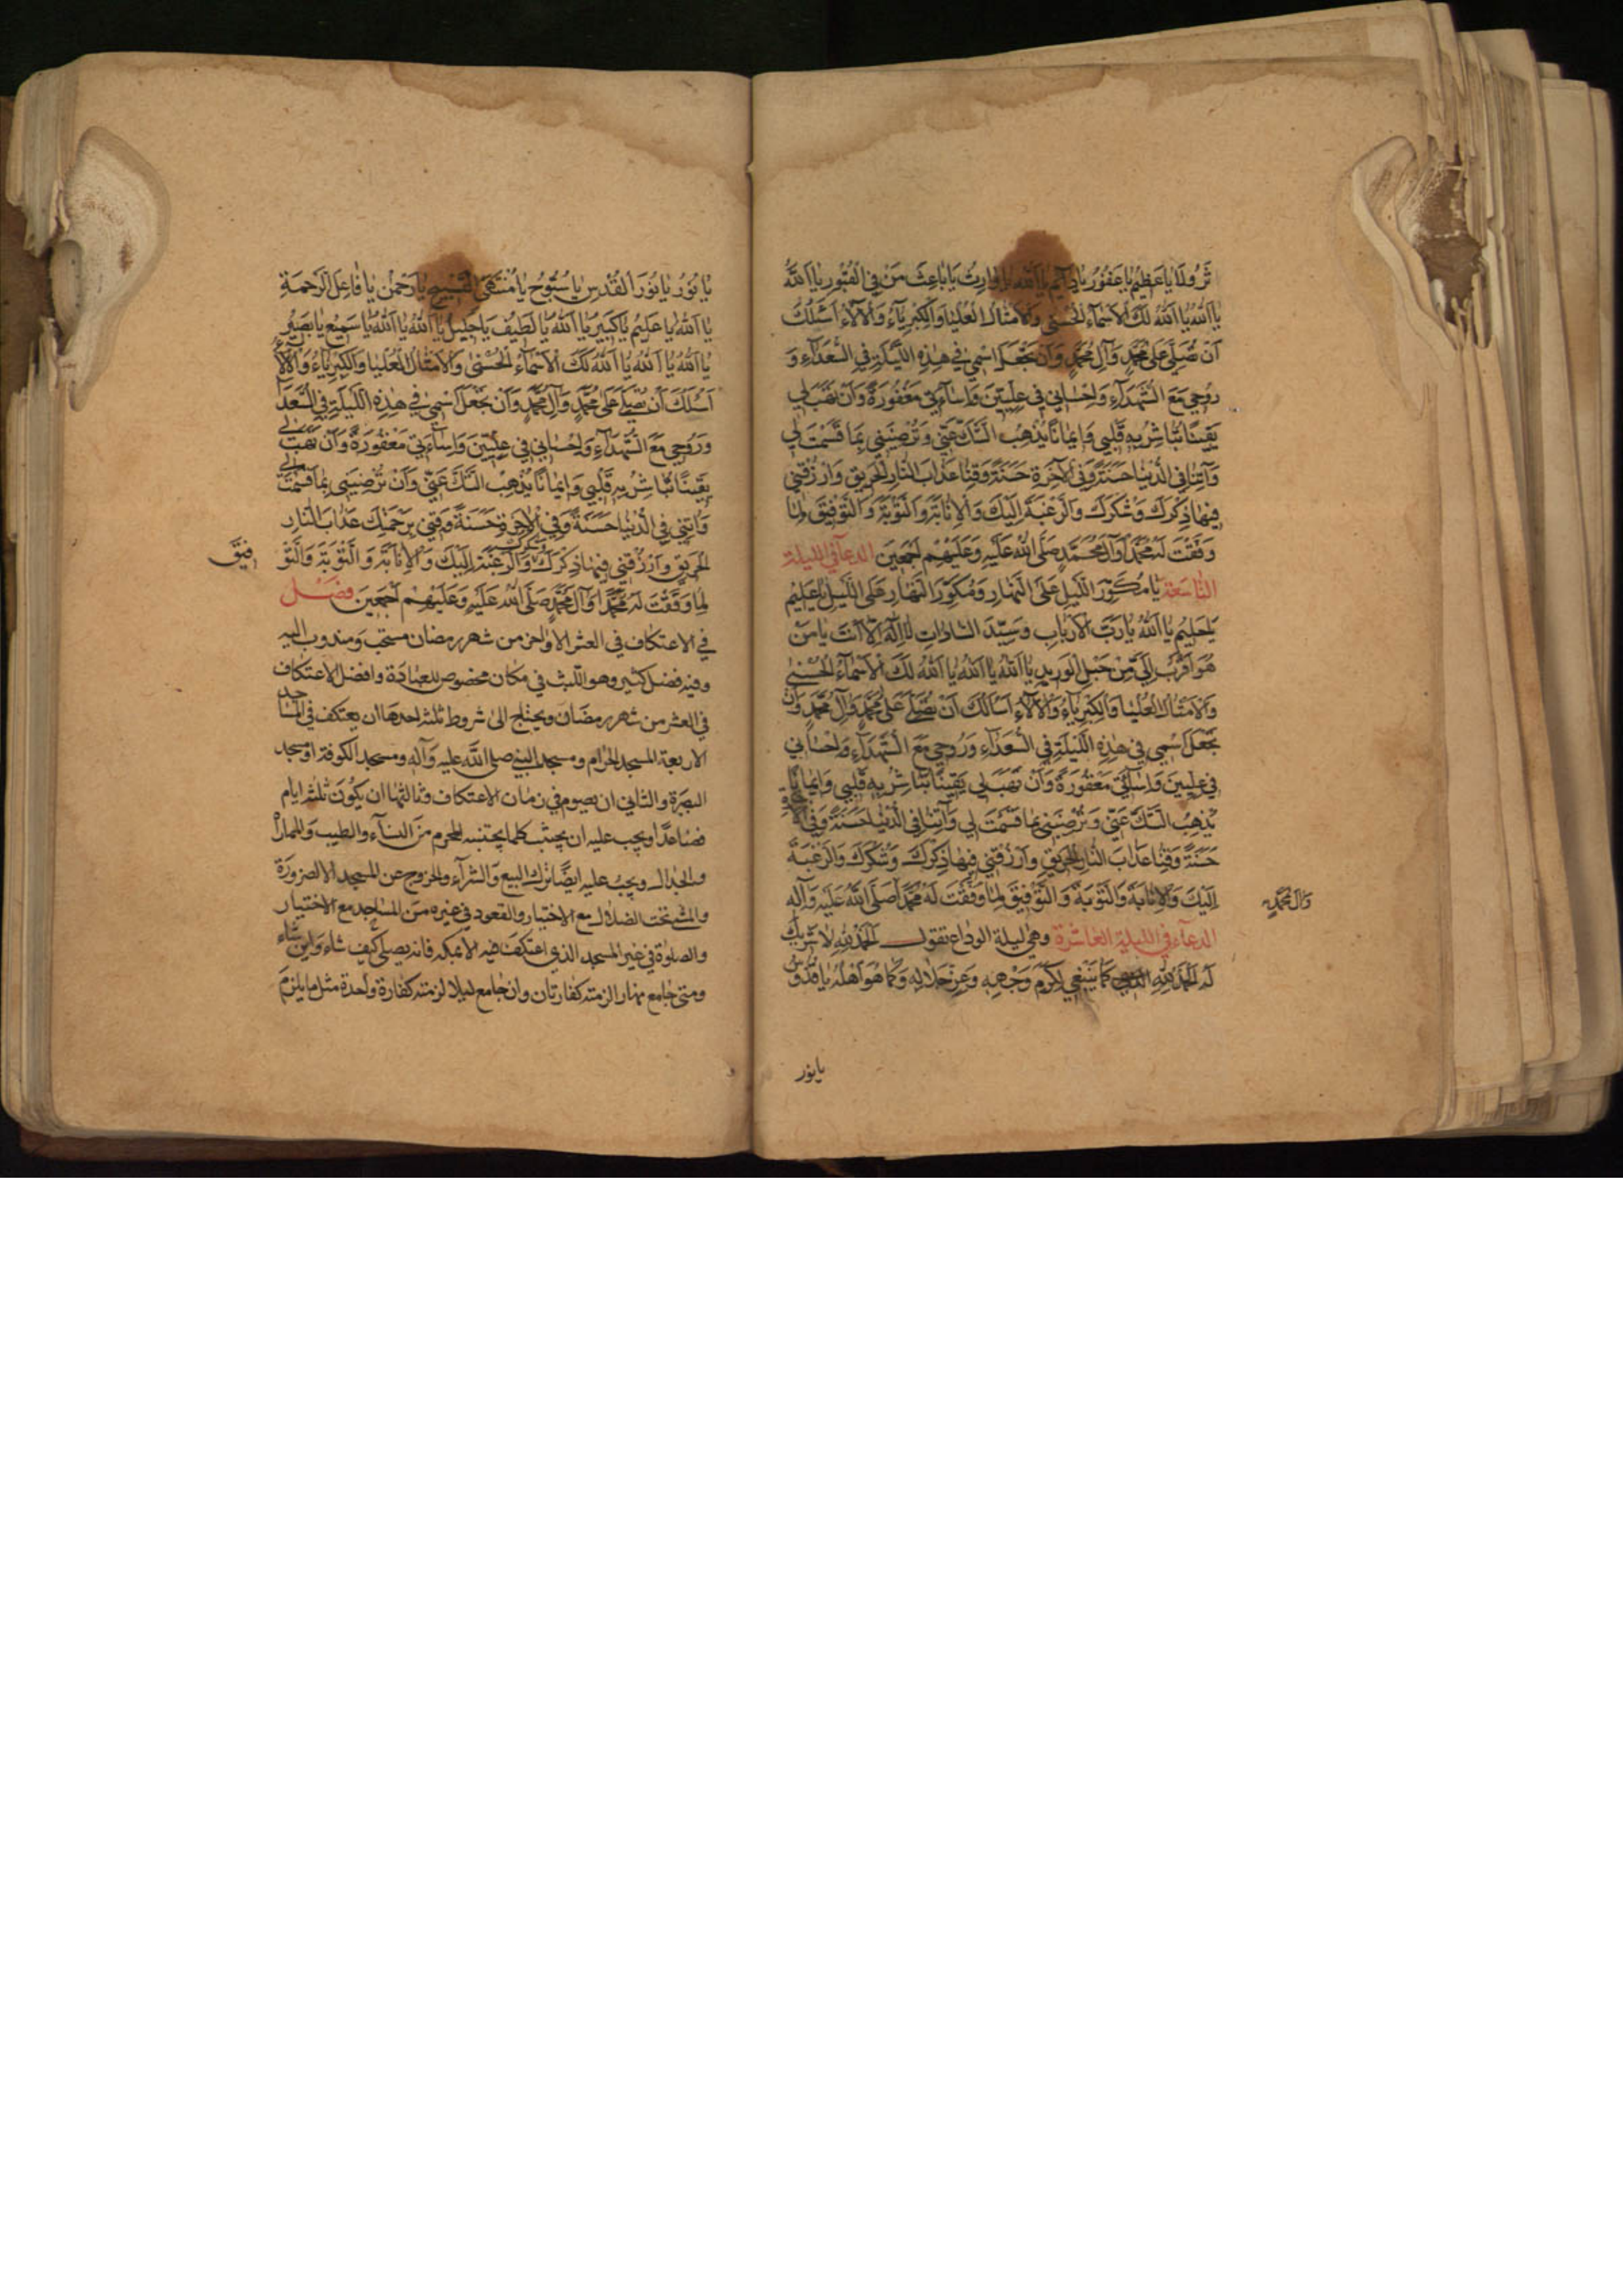 تَزُولَا يَا عَظِيمُ يَا غَفُورُ يَا دَائِمُ يَا اَللّٰهُ يَا وَارِثُ يَا بَاعِثَ مَنْ فِي الْقُبُورِ يَا اَللّٰهُ
يَا اَللّٰهُ يَا اَللّٰهُ لَكَ الْاَسْمَاءُ الْحُسْنٰى وَالْاَمْثَالُ الْعُلْيَا وَالْكِبْرِيَاءُ وَالْآلَاءُ اَسْئَلُكَ
اَنْ تُصَلِّيَ عَلٰى مُحَمَّدٍ وَآلِ مُحَمَّدٍ وَاَنْ تَجْعَلَ اسْمِي فِي هٰذِهِ اللَّيْلَةِ فِي السُّعَدَاءِ وَ
رُوحِي مَعَ الشُّهَدَاءِ وَاِحْسَانِي فِي عِلِّيِّينَ وَاِسَاءَتِي مَغْفُورَةً وَاَنْ تَهَبَ لِي
يَقِينًا تُبَاشِرُ بِهِ قَلْبِي وَاِيمَانًا يُذْهِبُ الشَّكَّ عَنِّي وَتُرْضِيَنِي بِمَا قَسَمْتَ لِي
وَآتِنَا فِي الدُّنْيَا حَسَنَةً وَفِي الْآخِرَةِ حَسَنَةً وَقِنَا عَذَابَ النَّارِ الْحَرِيقِ وَارْزُقْنِي
فِيهَا ذِكْرَكَ وَشُكْرَكَ وَالرَّغْبَةَ اِلَيْكَ وَالْاِنَابَةَ وَالتَّوْبَةَ وَالتَّوْفِيقَ لِمَا
وَفَّقْتَ لَهُ مُحَمَّدًا وَآلَ مُحَمَّدٍ صَلَّى اللّٰهُ عَلَيْهِ وَعَلَيْهِمْ اَجْمَعِينَ الدعاء في الليلة
التاسعة يَا مُكَوِّرَ اللَّيْلِ عَلَى النَّهَارِ وَمُكَوِّرَ النَّهَارِ عَلَى اللَّيْلِ يَا عَلِيمُ
يَا حَلِيمُ يَا اَللّٰهُ يَا رَبَّ الْاَرْبَابِ وَسَيِّدَ السَّادَاتِ لَا اِلٰهَ اِلَّا اَنْتَ يَا مَنْ
هُوَ اَقْرَبُ اِلَيَّ مِنْ حَبْلِ الْوَرِيدِ يَا اَللّٰهُ يَا اَللّٰهُ يَا اَللّٰهُ لَكَ الْاَسْمَاءُ الْحُسْنٰى
وَالْاَمْثَالُ الْعُلْيَا وَالْكِبْرِيَاءُ وَالْآلَاءُ اَسْاَلُكَ اَنْ تُصَلِّيَ عَلٰى مُحَمَّدٍ وَآلِ مُحَمَّدٍ وَاَنْ
تَجْعَلَ اسْمِي فِي هٰذِهِ اللَّيْلَةِ فِي السُّعَدَاءِ وَرُوحِي مَعَ الشُّهَدَاءِ وَاِحْسَانِي
فِي عِلِّيِّينَ وَاِسَائَتِي مَغْفُورَةً وَاَنْ تَهَبَ لِي يَقِينًا تُبَاشِرُ بِهِ قَلْبِي وَاِيمَانًا
يُذْهِبُ الشَّكَّ عَنِّي وَتُرْضِيَنِي بِمَا قَسَمْتَ لِي وَآتِنَا فِي الدُّنْيَا حَسَنَةً وَفِي الْآخِرَةِ
حَسَنَةً وَقِنَا عَذَابَ النَّارِ الْحَرِيقِ وَارْزُقْنِي فِيهَا ذِكْرَكَ وَشُكْرَكَ وَالرَّغْبَةَ
اِلَيْكَ وَالْاِنَابَةَ وَالتَّوْبَةَ وَالتَّوْفِيقَ لِمَا وَفَّقْتَ لَهُ مُحَمَّدًا صَلَّى اللّٰهُ عَلَيْهِ وَآلِهِ
وَآلَ مُحَمَّدٍ
الدعاء في الليلة العاشرة وهي ليلة الوداع تقول اَلْحَمْدُ لِلّٰهِ لَا شَرِيكَ
لَهُ الْحَمْدُ لِلّٰهِ كَمَا يَنْبَغِي لِكَرَمِ وَجْهِهِ وَعِزِّ جَلَالِهِ وَكَمَا هُوَ اَهْلُهُ يَا قُدُّوسُ
يا نور
يَا نُورُ يَا نُورَ الْقُدْسِ يَا سُبُّوحُ يَا مُنْتَهَى التَّسْبِيحِ يَا رَحْمٰنُ يَا فَاعِلَ الرَّحْمَةِ
يَا اَللّٰهُ يَا عَلِيمُ يَا كَبِيرُ يَا اَللّٰهُ يَا لَطِيفُ يَا جَلِيلُ يَا اَللّٰهُ يَا اَللّٰهُ يَا سَمِيعُ يَا بَصِيرُ
يَا اَللّٰهُ يَا اَللّٰهُ يَا اَللّٰهُ لَكَ الْاَسْمَاءُ الْحُسْنٰى وَالْاَمْثَالُ الْعُلْيَا وَالْكِبْرِيَاءُ وَالْآلَاءُ
اَسْئَلُكَ اَنْ تُصَلِّيَ عَلٰى مُحَمَّدٍ وَآلِ مُحَمَّدٍ وَاَنْ تَجْعَلَ اسْمِي فِي هٰذِهِ اللَّيْلَةِ فِي السُّعَدَاءِ
وَرُوحِي مَعَ الشُّهَدَاءِ وَاِحْسَانِي فِي عِلِّيِّينَ وَاِسَاءَتِي مَغْفُورَةً وَاَنْ تَهَبَ لِي
يَقِينًا تُبَاشِرُ بِهِ قَلْبِي وَاِيمَانًا يُذْهِبُ الشَّكَّ عَنِّي وَاَنْ تُرْضِيَنِي بِمَا قَسَمْتَ لِي
وَآتِنِي فِي الدُّنْيَا حَسَنَةً وَفِي الْآخِرَةِ حَسَنَةً وَقِنِي بِرَحْمَتِكَ عَذَابَ النَّارِ
الْحَرِيقِ وَارْزُقْنِي فِيهَا ذِكْرَكَ وَشُكْرَكَ وَالرَّغْبَةَ اِلَيْكَ وَالْاِنَابَةَ وَالتَّوْبَةَ وَالتَّوْ
فِيقَ
لِمَا وَفَّقْتَ لَهُ مُحَمَّدًا وَآلَ مُحَمَّدٍ صَلَّى اللّٰهُ عَلَيْهِ وَعَلَيْهِمْ اَجْمَعِينَ فصل
في الاعتكاف في العشر الاواخر من شهر رمضان مستحب ومندوب اليه
وفيه فضل كثير وهو اللبث في مكان مخصوص للعبادة وافضل الاعتكاف
في العشر من شهر رمضان ويحتاج الى شروط ثلثة احدها ان يعتكف في المساجد
الاربعة المسجد الحرام ومسجد النبي صلى الله عليه وآله ومسجد الكوفة او مسجد
البصرة والثاني ان يصوم في زمان الاعتكاف وثالثها ان يكون ثلثة ايام
فصاعدا ويجب عليه ان يجتنب كلما يجتنبه المحرم من النساء والطيب والمماراة
والجدال ويجب عليه ايضا ترك البيع والشراء والخروج عن المسجد الا لضرورة
والمشي تحت الضلال مع الاختيار والقعود في غيره من المساجد مع الاختيار
والصلوة في غير المسجد الذي اعتكف فيه الا بمكة فانه يصلي كيف شاء واين شاء
ومتى جامع نهارا لزمته كفارتان وان جامع ليلا لزمته كفارة واحدة مثل ما يلزم